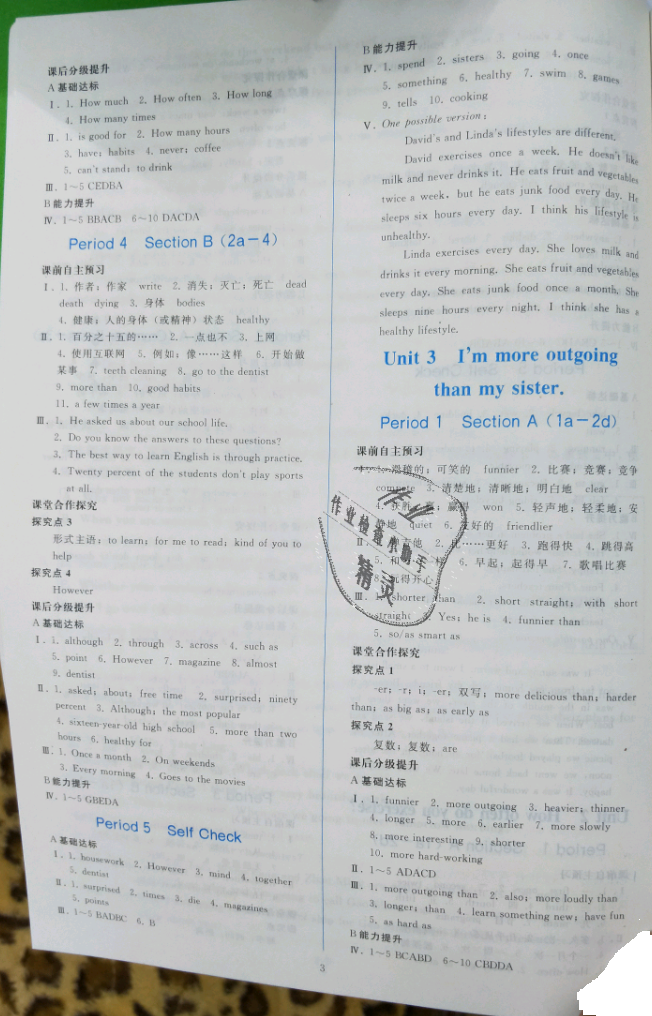 课后分级提升
A 基础达标
Ⅰ. 1. How much 2. How often 3. How long
4. How many times
Ⅱ. 1. is good for 2. How many hours
3. have; habits 4. never; coffee
5. can't stand; to drink
Ⅲ. 1～5 CEDBA
B 能力提升
Ⅳ. 1～5 BBACB 6～10 DACDA
Period 4 Section B (2a－4)
课前自主预习
Ⅰ. 1. 作者；作家 write 2. 消失；灭亡；死亡 dead
death dying 3. 身体 bodies
4. 健康；人的身体（或精神）状态 healthy
Ⅱ. 1. 百分之十五的…… 2. 一点也不 3. 上网
4. 使用互联网 5. 例如；像……这样 6. 开始做
某事 7. teeth cleaning 8. go to the dentist
9. more than 10. good habits
11. a few times a year
Ⅲ. 1. He asked us about our school life.
2. Do you know the answers to these questions?
3. The best way to learn English is through practice.
4. Twenty percent of the students don't play sports
at all.
课堂合作探究
探究点 3
形式主语；to learn；for me to read；kind of you to
help
探究点 4
However
课后分级提升
A 基础达标
Ⅰ. 1. although 2. through 3. across 4. such as
5. point 6. However 7. magazine 8. almost
9. dentist
Ⅱ. 1. asked; about; free time 2. surprised; ninety
percent 3. Although; the most popular
4. sixteen-year-old high school 5. more than two
hours 6. healthy for
Ⅲ. 1. Once a month 2. On weekends
3. Every morning 4. Goes to the movies
B 能力提升
Ⅳ. 1～5 GBEDA
Period 5 Self Check
A 基础达标
Ⅰ. 1. housework 2. However 3. mind 4. together
5. dentist
Ⅱ. 1. surprised 2. times 3. die 4. magazines
5. points
Ⅲ. 1～5 BADBC 6. B
B 能力提升
Ⅳ. 1. spend 2. sisters 3. going 4. once
5. something 6. healthy 7. swim 8. games
9. tells 10. cooking
Ⅴ. One possible version:
David's and Linda's lifestyles are different.
David exercises once a week. He doesn't like
milk and never drinks it. He eats fruit and vegetables
twice a week, but he eats junk food every day. He
sleeps six hours every day. I think his lifestyle is
unhealthy.
Linda exercises every day. She loves milk and
drinks it every morning. She eats fruit and vegetables
every day. She eats junk food once a month. She
sleeps nine hours every night. I think she has a
healthy lifestyle.
Unit 3 I'm more outgoing
than my sister.
Period 1 Section A (1a－2d)
课前自主预习
滑稽的；可笑的 funnier 2. 比赛；竞赛；竞争
compete 3. 清楚地；清晰地；明白地 clear
4. 赢得 won 5. 轻声地；轻柔地；安
静地 quiet 6. 友好的 friendlier
Ⅱ. 2. ……更好 3. 跑得快 4. 跳得高
5. 和 样 6. 早起；起得早 7. 歌唱比赛
8. 玩得开心
Ⅲ. 1. shorter than 2. short straight; with short
straight 3. Yes; he is 4. funnier than
5. so/as smart as
课堂合作探究
探究点 1
-er；-r；i；-er；双写；more delicious than；harder
than；as big as；as early as
探究点 2
复数；复数；are
课后分级提升
A 基础达标
Ⅰ. 1. funnier 2. more outgoing 3. heavier; thinner
4. longer 5. more 6. earlier 7. more slowly
8. more interesting 9. shorter
10. more hard-working
Ⅱ. 1～5 ADACD
Ⅲ. 1. more outgoing than 2. also; more loudly than
3. longer; than 4. learn something new; have fun
5. as hard as
B 能力提升
Ⅳ. 1～5 BCABD 6～10 CBDDA
作业
作业检查小助手
精灵
3